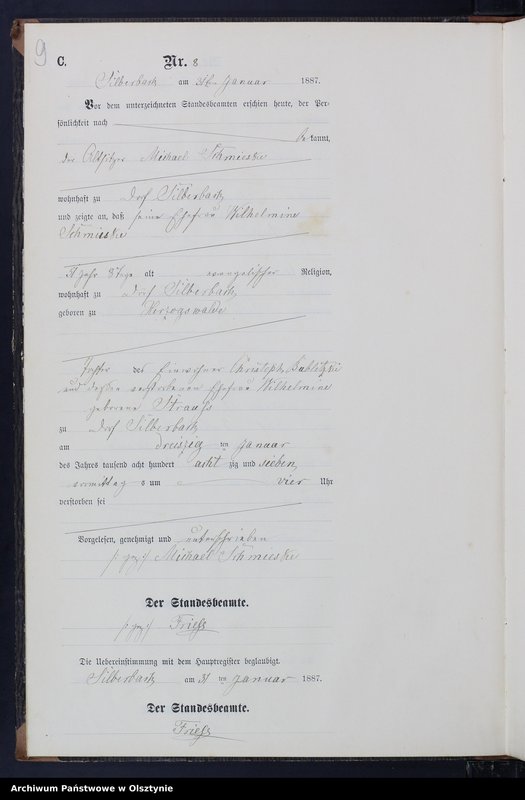 9
C.
Nr. 8
Silberbach am 31ten Januar 1887.
Vor dem unterzeichneten Standesbeamten erschien heute, der Per-
sönlichkeit nach
be kannt,
der Altsitzer Michael Schmieskie
wohnhaft zu Dorf Silberbach
und zeigte an, daß seine Ehefrau Wilhelmine
Schmieskie
Jahr 8 Tage alt evangelischer Religion,
wohnhaft zu Dorf Silberbach,
geboren zu Herzogswalde
Tochter des Einwohner Christoph
und dessen verstorbenen Ehefrau Wilhelmine
geborene Strauss
zu Dorf Silberbach
am dreiszig ten Januar
des Jahres tausend acht hundert acht zig und sieben,
vormittag s um vier Uhr
verstorben sei
Vorgelesen, genehmigt und unterschrieben
/: gez :/ Michael Schmieskie
Der Standesbeamte.
/: gez :/ Friese
Die Uebereinstimmung mit dem Hauptregister beglaubigt.
Silberbach am 31 ten Januar 1887.
Der Standesbeamte.
Friese
Archiwum Państwowe w Olsztynie